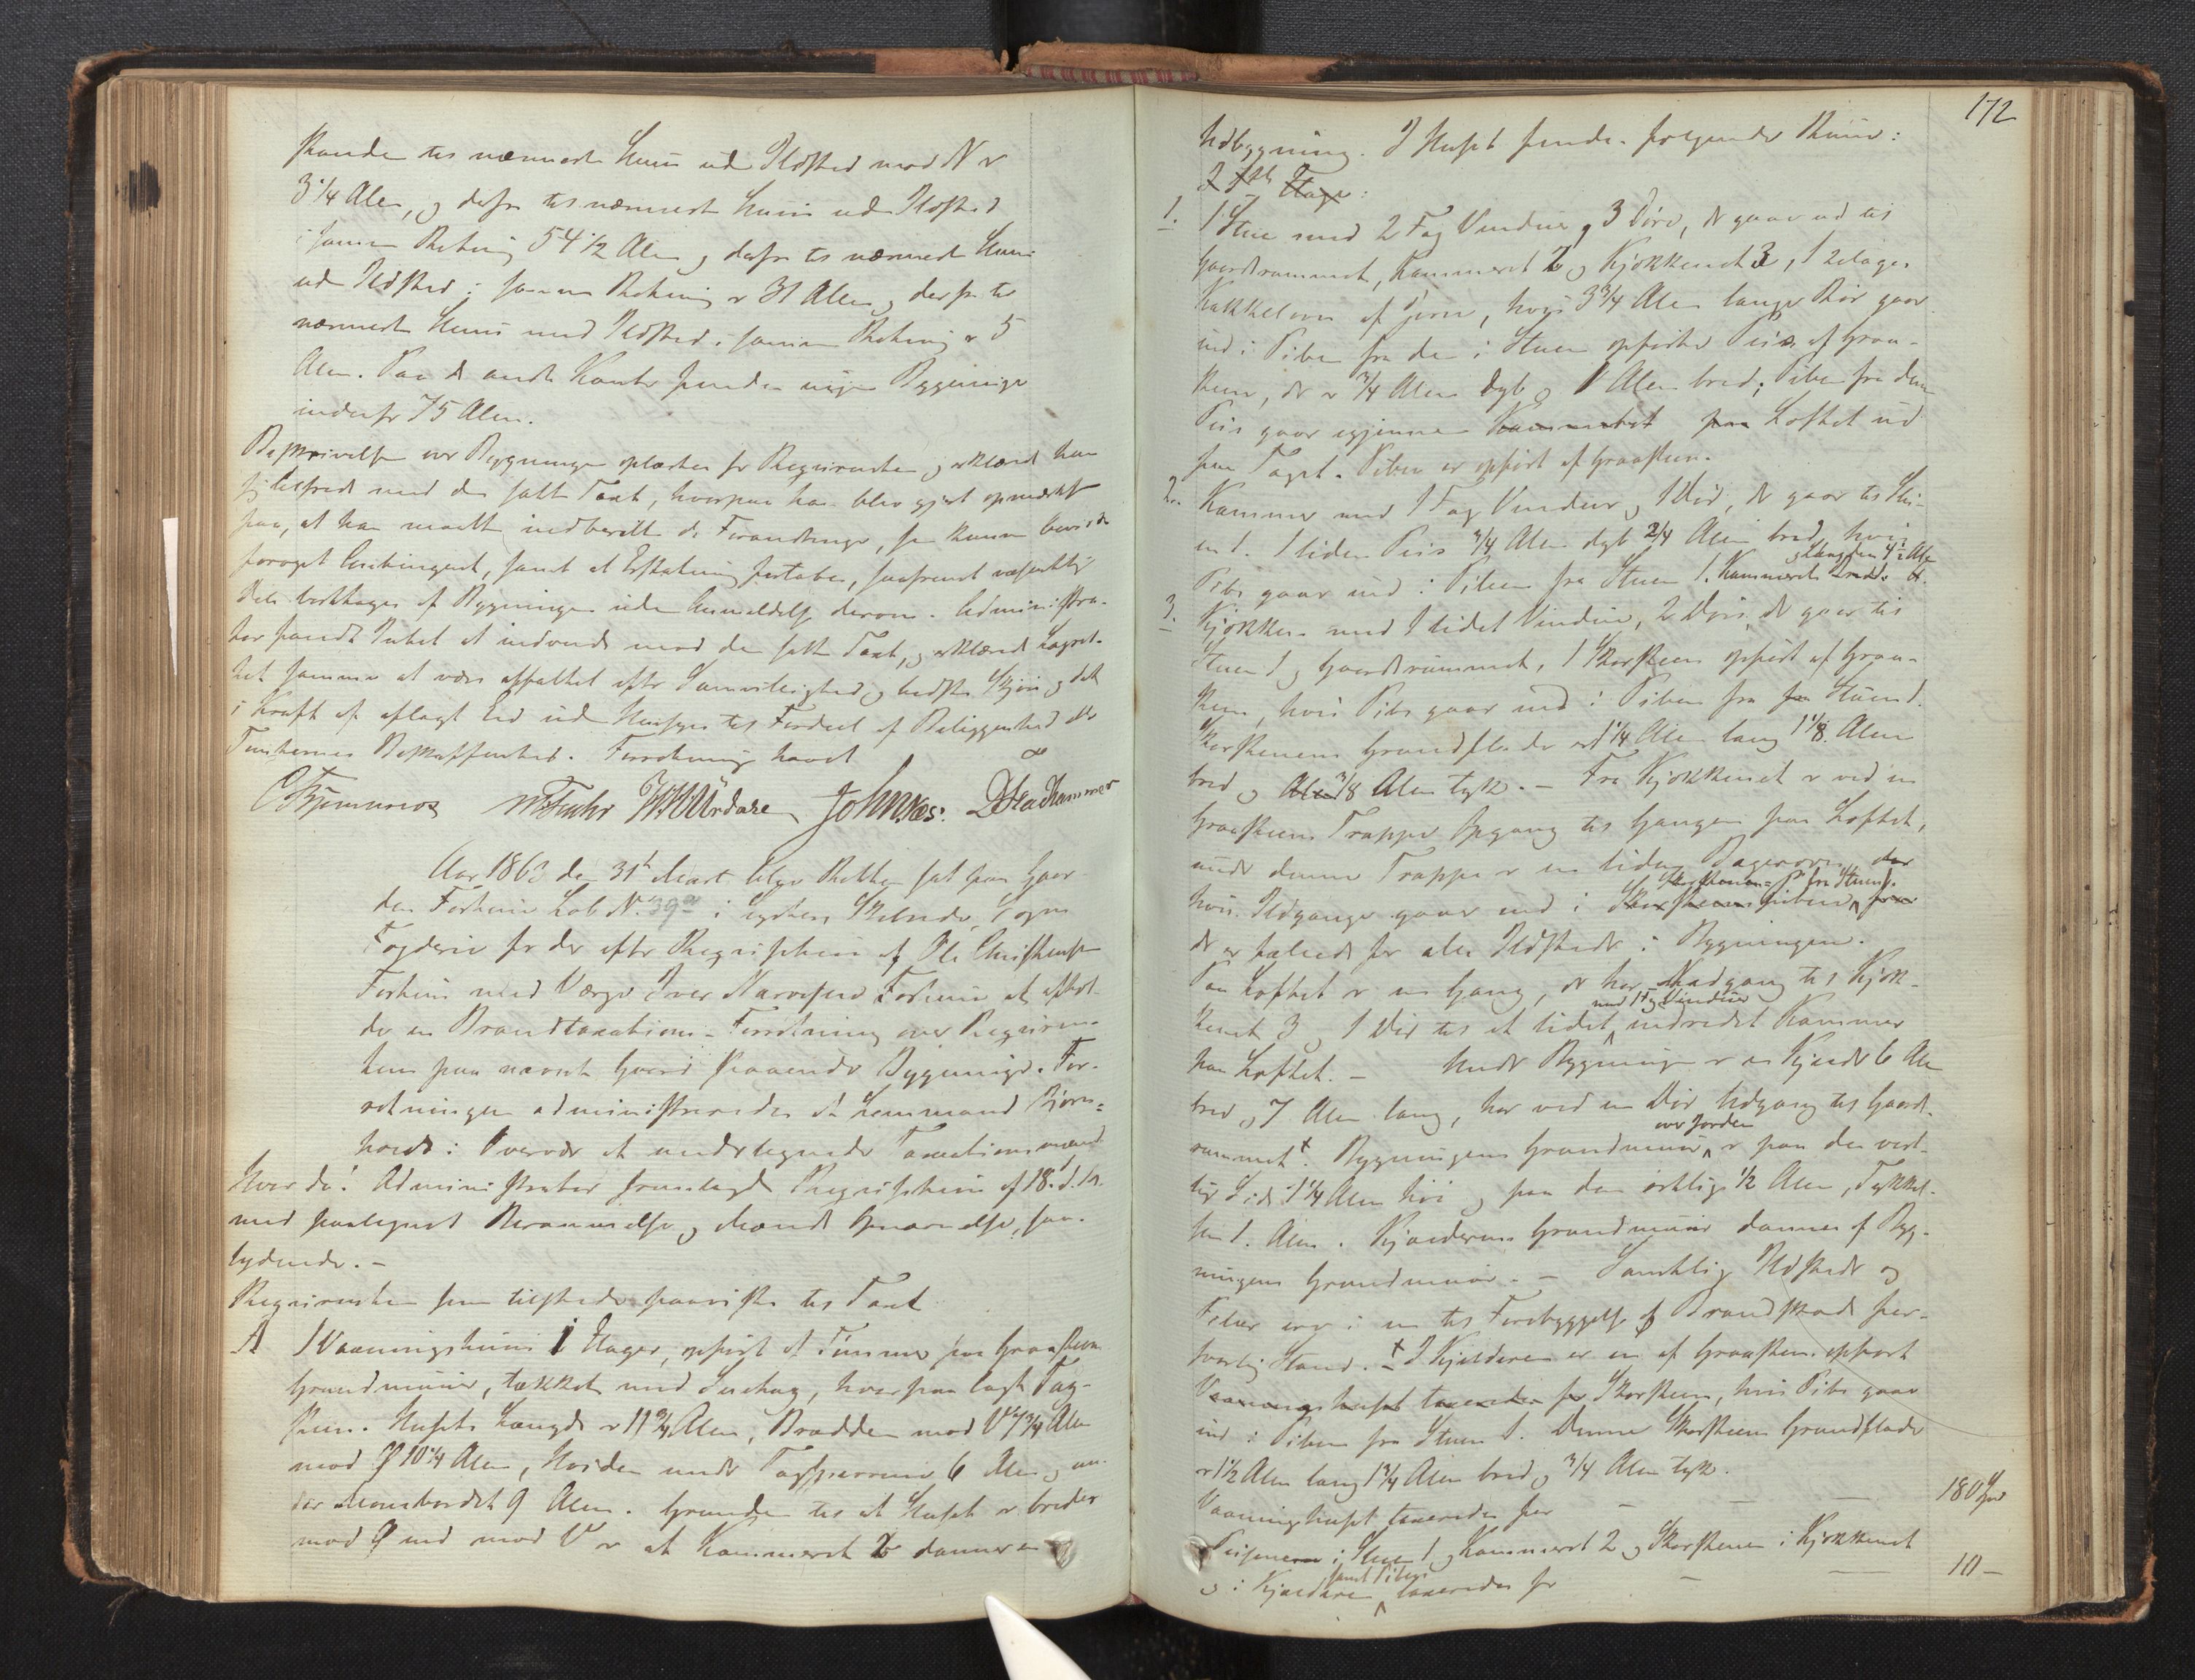 standen til nærmeste Huus uden Ildsted mod N er
3 1/4 Alen, og derfra til nærmeste Huus uden Ildsted
i samme Retning 54 1/2 Alen og derfra til nærmeste Huus
uden Ildsted i samme Retning er 31 Alen og derfra til
nærmeste Huus med Ildsted i samme Retning er 5
Alen. Paa de andre Kanter findes ingen Bygninger
indenfor 75 Alen.
Beskrivelsen over Bygningen oplæstes for Reqvirenten og erklærede han
sig tilfreds med den satte Taxt, hvorpaa han blev gjort opmærksom
paa, at han maatte indberette de Forandringer, som kunne bevirke
forøget Contingent, samt at Erstatning fortabes, saafremt væsentlige
Dele borttages af Bygningen uden Anmeldelse derom. Administra-
tor fandt Intet at indvende mod den satte Taxt, og erklærede Lagret-
tet samme at være affattet efter Samvittighed og bedste Skjøn og det
i Kraft af aflagt Eed uden Hensyn til Fordeel af Beliggenhed eller
Tomternes Beskaffenhed. Forretningen hævet
Aar 1863 den 31te Mart. blev Retten sat paa Gaar-
den Forthun Løb No. 39a i Lysters Skibrede, Sogns
Fogderie for der efter Reqvisition af Ole Christensen
Forthun med Værge Iver Narvesen Forthun at afhol-
de en Brandtaxations-Forretning over Reqviren-
tens paa nævnte Gaard staaende Bygninger. For-
retningen administreredes af Lensmand Bjørn-
 i Overvær af undertegnede Taxationsmænd
Hvor da: Administrator fremlagde Reqvisition af 18. d. M.
med paategnet Berammelse og Mænds Opnævnelse, saa-
lydende. -
Reqvirenten som tilstede paaviste til Taxt
A 1 Vaaningshuus 1 Etager, opført af Tømmer paa Graasteens
Grundmuur, tækket med Sutag, hvorpaa lagt Tag-
steen. Husets Længde er 11 3/4 Alen, Bredden mod V 7 3/4 Alen
mod Ø 10 1/4 Alen, Høiden under Tagskjægget 6 Alen og un-
der Mønebordet 9 Alen. Grunden til at Huset er breder
mod Ø end mod V er at Kammeret 2 danner en
172
Udbygning. I Huset findes følgende Rum:
I 1ste Etage:
1. 1 Stue med 2 Fag Vinduer og 3 Døre, der gaar ud til
Gaardsrummet, Kammeret 2 og Kjøkkenet 3, 1 2 etages
Kakkelovn af Jern, hvis 3 3/4 Alen lange Rør gaar
ind i Piben fra den i Stuen opførte Piis af Graa-
steen, der er 3/4 Alen dyb og 1 Alen bred; Piben fra denne
Piis gaar igjennem Kammerset paa Loftet ud
paa Taget. Piben er opført af Graasteen.
2. Kammer med 1 Fag Vinduer og 1 Dør, der gaar til Stu-
en 1. 1 liden Piis 3/4 Alen dyb 3/4 Alen bred, hvis
Pibe gaar ind i Piben fra Stuen 1. Kammerets Bredde og Længden 4 1/2 Alen
3. Kjøkken med 1 lidet Vindue, 2 Døre, der gaar til
Stuen 1 og Gaardsrummet, 1 Skorsteen opført af Graa-
steen, hvis Pibe gaar ind i Piben fra fra Stuen 1.
Skorstenens Grundflade er 1 1/4 Alen lang 1 1/8 Alen
bred og Alen 3/8 Alen tyk. - Fra Kjøkkenet er ved en
Graasteens Trappe Opgang til Gangen paa Loftet,
under denne Trappe er en liden Bagerovn der
hvis Ildgange gaar ind i Skorsteenspiben Skorstenens Pibe fra Stuen 1. som
der er fælleds for alle Ildsteder i Bygningen.
Paa Loftet er en Gang, der har Nedgang til Kjøk-
kenet 3 og 1 Dør til et lidet med 1 Fag Vinduer indredet Kammer
paa Loftet. - Under Bygningen er en Kjælder 6 Alen
bred og 7 Alen lang, har ved en Dør Udgang til Gaards-
rummet +. Bygningens Grundmuur over Jorden er paa den vest-
lige Side 1 1/4 Alen høi og paa den østlige 1/2 Alen, Tykkel-
sen 1. Alen. Kjælderens Grundmuur dannes af Byg-
ningens Grundmuur. - Samtlige Ildsteder og
Piber ere i en til Forebyggelse af Brandskade for-
svarlig Stand. + I Kjælderen er en af Graasteen opført
Vaaningshuset taxeredes for Skorsteen, hvis Pibe gaar
ind i Piben fra Stuen 1. Denne Skorsteens Grundflade
er 1 1/2 Alen lang 1 3/4 Alen bred og 3/4 Alen tyk.
Vaaningshuset taxeredes for - - - 180 Spd
Pisene i Stuen 1 og Kammeret 2 og Skorstenen i Kjøkkenet
og i Kjælderen samt Piben taxeredes for - - 10 -